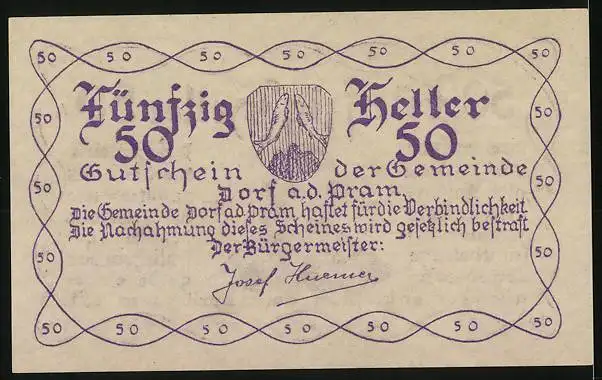 50 50 50 50 50 50
50 50
Fünfzig Heller
50 50
Gutschein der Gemeinde
50 50
Dorf a.d. Pram.
Die Gemeinde Dorf a.d. Pram, haftet für die Verbindlichkeit
Die Nachahmung dieses Scheines wird gesetzlich bestraft
Der Bürgermeister:
50 50
Josef Huemer
50 50 50 50 50 50 50 50